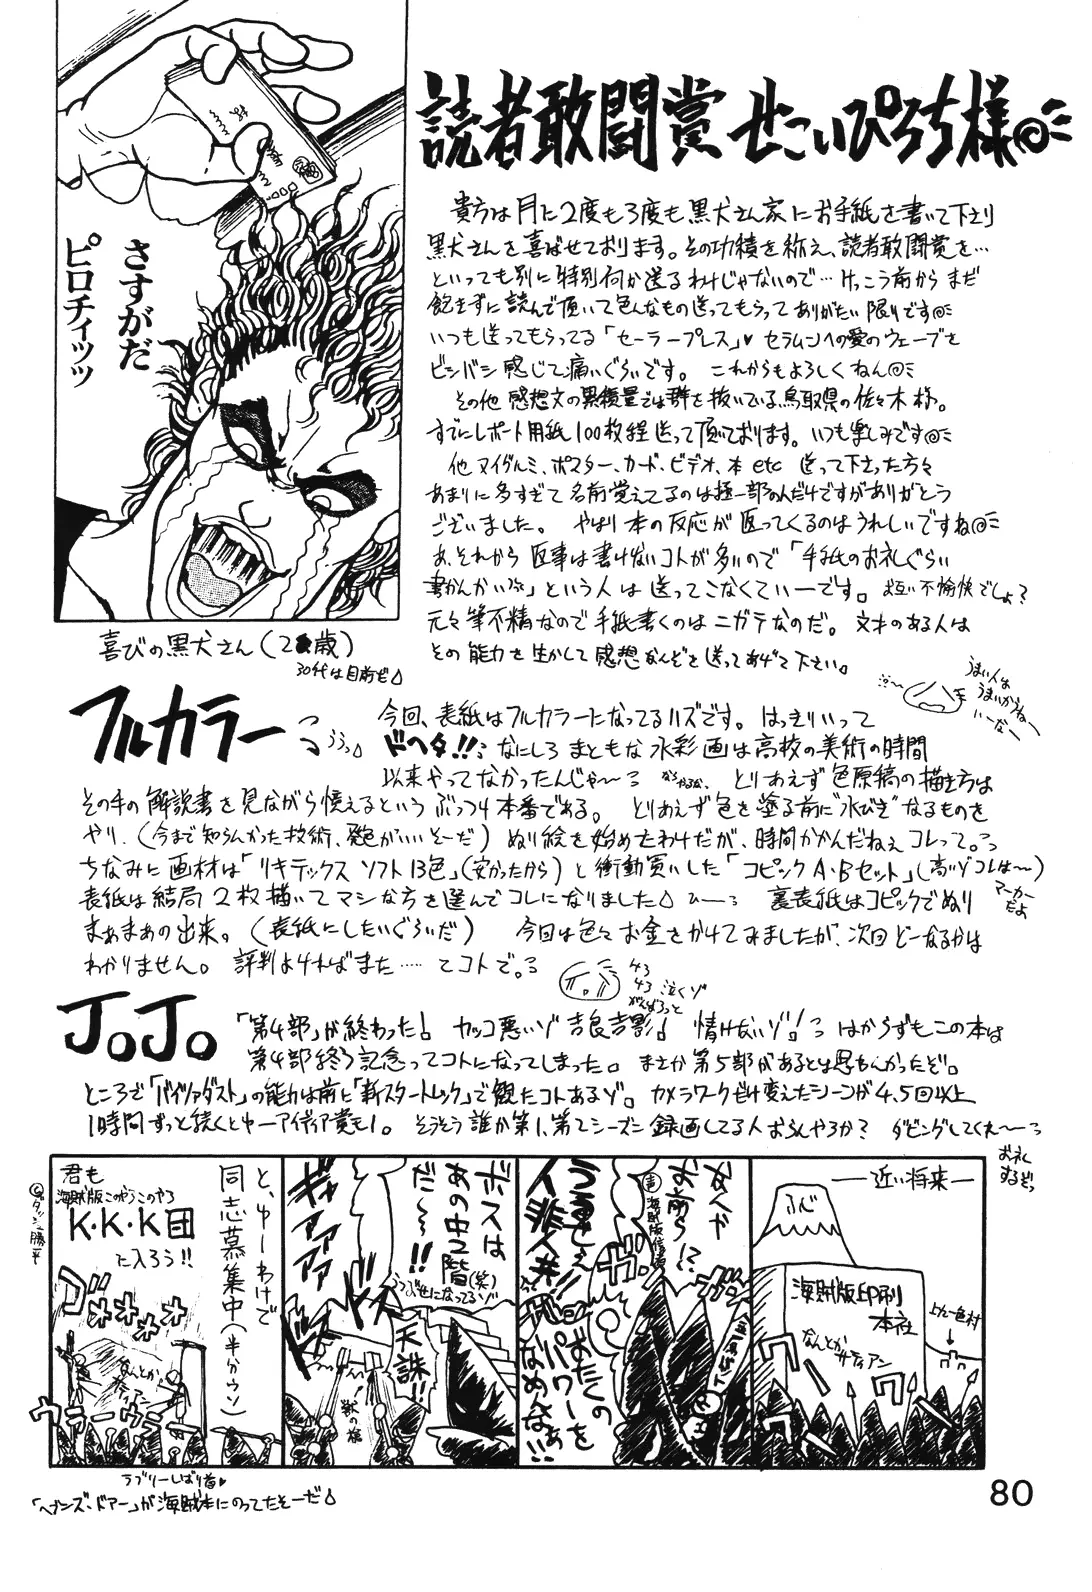 読者敢闘賞 せこいぴろち様
さすがだ
ピロチィッッ
喜びの黒犬さん(2歳)
30代は目前だ
貴方は月に2度も3度も黒犬さん家にお手紙を書いて下さり
黒犬さんを喜ばせております。その功積を称え、読者敢闘賞を…
といっても別に特別何か送るわけじゃないので…けっこう前からまだ
飽きずに読んで頂いて色んなもの送ってもらってありがたい限りです
いつも送ってもらってる「セーラープレス」♥セラムンへの愛のウェーブを
ビンバン感じて痛いぐらいです。これからもよろしくねん
その他 感想文の累積量では群を抜いている鳥取県の佐々木様。
すでにレポート用紙100枚程送って頂いております。いつも楽しみです
他 ヌイグルミ、ポスター、カード、ビデオ、本 etc 送って下さった方々
あまりに多すぎて名前覚えてるのは極一部の人だけですがありがとう
ございました。やはり本の反応が返ってくるのはうれしいですね
あ、それから返事は書けないコトが多いので「手紙のお礼ぐらい
書かんかい」という人は送ってこなくていーです。お互い不愉快でしょ?
元々筆不精なので手紙書くのはニガテなのだ。文才のある人は
その能力を生かして感想なんぞを送ってあげて下さい。
うまい人は
うまいからねー
いーなー
フルカラー
今回、表紙はフルカラーになってるハズです。はっきりいって
ドヘタ!! なにしろまともな水彩画は高校の美術の時間
以来やってなかったんじゃ〜 とりあえず色原稿の描き方は
その手の解説書を見ながら憶えるというぶっつけ本番である。とりあえず色を塗る前に"水びき"なるものを
やり、(今まで知らんかった技術、発色がいいそーだ)ぬり絵を始めたわけだが、時間かかんだねぇコレって。
ちなみに画材は「リキテックス ソフト13色」(安かったから)と衝動買いした「コピック A・Bセット」(高いゾコレは〜)
マーカーだよ
表紙は結局2枚描いてマシな方を選んでコレになりました ひーっ 裏表紙はコピックでぬり
まぁまぁの出来。(表紙にしたいぐらいだ) 今回は色々お金をかけてみましたが、次回どーなるかは
わかりません。評判よければまた……てコトで。
JoJo
「第4部」が終わった! カッコ悪いゾ吉良吉影! 情けないゾ! はからずもこの本は
第4部終了記念ってコトになってしまった。まさか第5部があるとは思もんかったぞ。
ところで「バイツァダスト」の能力は前に「新スタートレック」で観たコトあるゾ。カメラワークだけ変えたシーンが4,5回以上
1時間ずっと続くとゆーアイディア賞もん。そうそう誰か第1、第2シーズン録画してる人おらんやろか? ダビングしてくれ〜っ
お礼
するぞっ
―近い将来―
ふじ
海賊版印刷
本社
なんとか
サティアン
上九一色村
なんや
お前ら!?
うるせえ
人非人共
おたくの
パワーを
なめんなぁ!!
ボスは
あの中2階(笑)
だ〜〜!!
天誅!!
ギャアアアア
と、ゆーわけで
同志募集中(半分ウソ)
君も
海賊版このやろこのやろ
K・K・K団
に入ろう!!
なんとか
サティアン
ウラーウラー
ラブリーしばり首♥
「ヘブンズ・ドアー」が海賊本にのってたそーだ
80